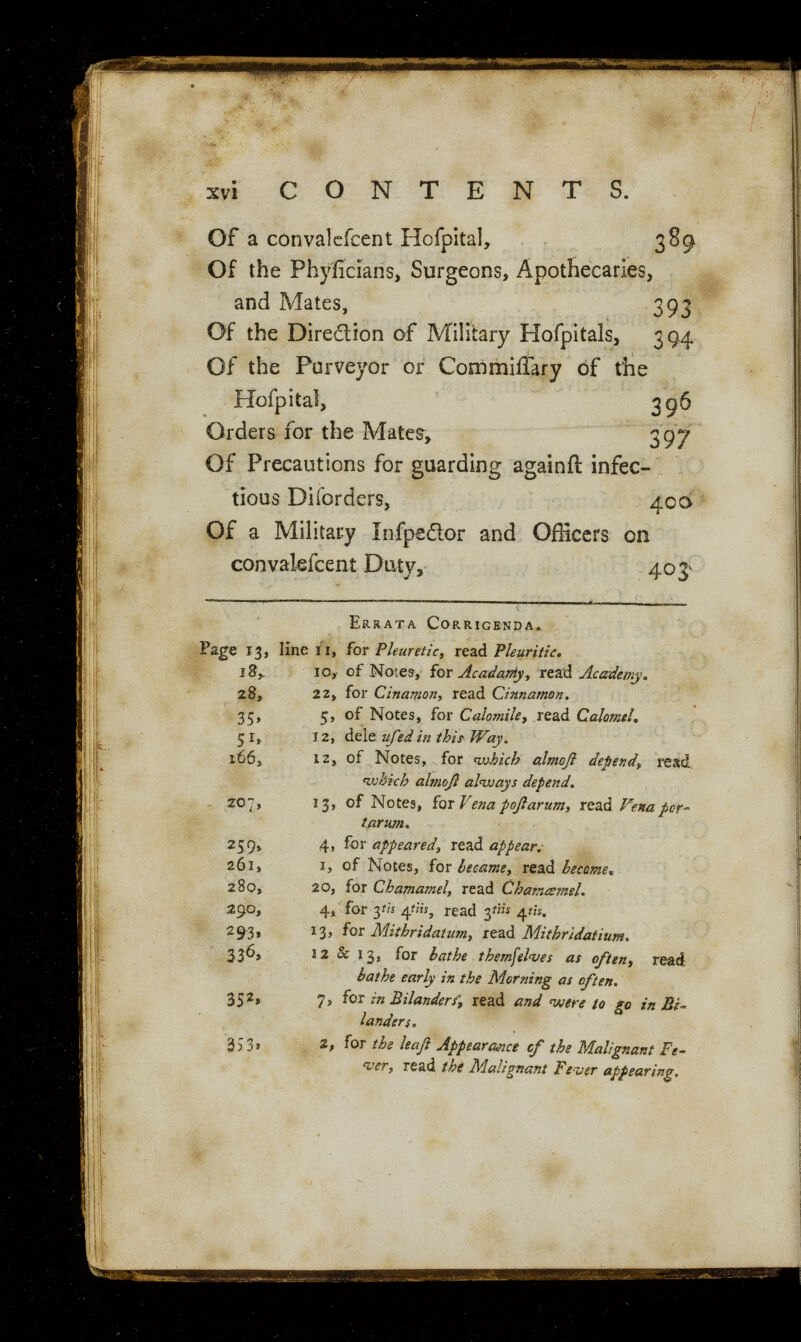 xvi CONTENTS.
Of a convaleſcent Hoſpital, 389
Of the Phyſicians, Surgeons, Apothecaries,
and Mates, 393
Of the Direction of Military Hoſpitals, 394
Of the Purveyor or Commiſſary of the
Hoſpital, 396
Orders for the Mates, 397
Of Precautions for guarding againſt infec-
tious Diſorders, 400
Of a Military Inſpector and Officers on
convaleſcent Duty, 403
ERRATA CORRIGENDA.
Page 13, line 11, for Pleuretic, read Pleuritic.
18, 10, of Notes, for Acadamy, read Academy.
28, 22, for Cinamon, read Cinnamon.
35, 5, of Notes, for Calomile, read Calomel.
51, 12, dele uſed in this Way.
166, 12, of Notes, for which almoſt depend, read
which almoſt always depend.
207, 13, of Notes, for Vena poſtarum, read Vena por-
tarum.
259, 4, for appeared, read appear.
261, 1, of Notes, for became, read become.
280, 20, for Chamamel, read Chamæmel.
290, 4, for 3tis 4tiis, read 3tiis 4tis.
293, 13, for Mithridatum, read Mithridatium.
336, 12 & 13, for bathe themſelves as often, read
bathe early in the Morning as often.
352, 7, for in Bilanders, read and were to go in Bi-
landers.
353, 2, for the leaſt Appearance of the Malignant Fe-
ver, read the Malignant Fever appearing.